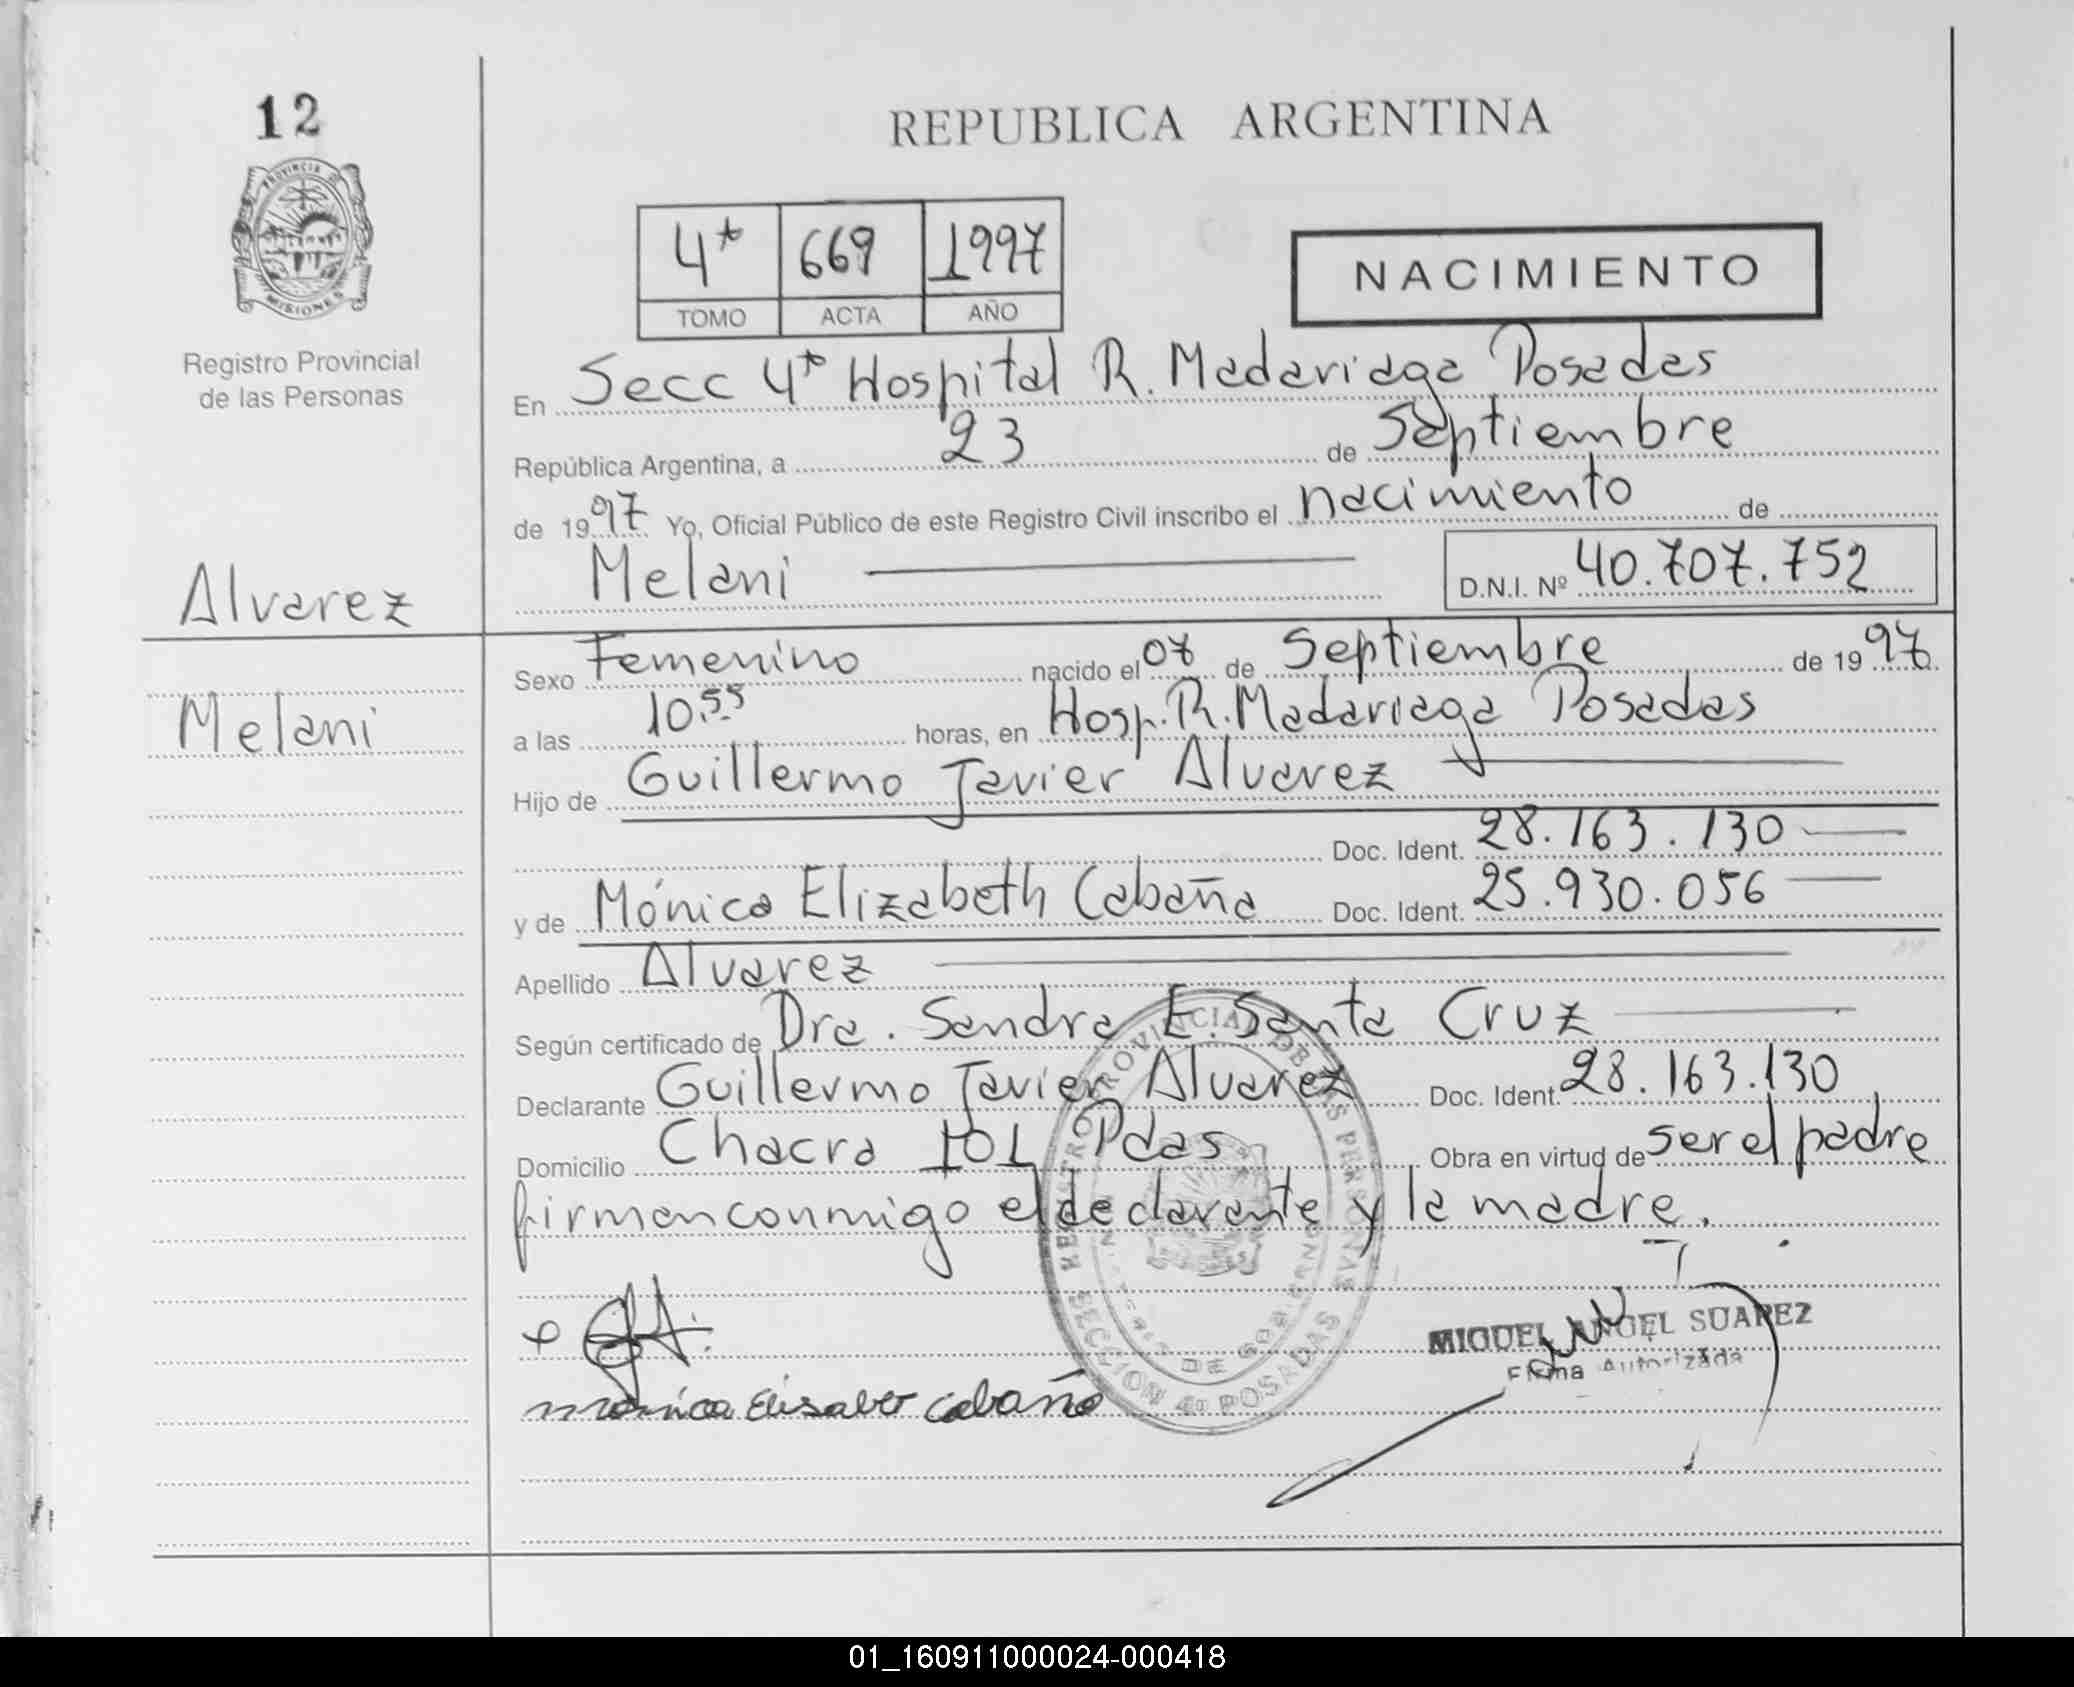 12
REPUBLICA ARGENTINA
PROVINCIA D
MISIONES
Registro Provincial
de las Personas
4* 669 1997
TOMO ACTA AÑO
NACIMIENTO
En Secc 4* Hospital R. Madariaga Posadas
República Argentina, a 23 de Septiembre
de 1997 Yo, Oficial Público de este Registro Civil inscribo el nacimiento de
Melani D.N.I. Nº 40.707.752
Alvarez
Sexo Femenino nacido el 07 de Septiembre de 1997
Melani
a las 10.55 horas, en Hosp. R. Madariaga Posadas
Hijo de Guillermo Javier Alvarez
Doc. Ident. 28.163.130
y de Mónica Elizabeth Cabaña Doc. Ident. 25.930.056
Apellido Alvarez
Según certificado de Dra. Sandra E. Santa Cruz
Declarante Guillermo Javier Alvarez Doc. Ident. 28.163.130
Domicilio Chacra 101 Pdas Obra en virtud de ser el padre
firman conmigo el declarante y la madre.
REGISTRO PROVINCIAL DE LAS PERSONAS
DE GOBIERNO
SECCION 4a POSADAS
MIGUEL ANGEL SUAREZ
Firma Autorizada
monica Elisabet cabaña
01_160911000024-000418